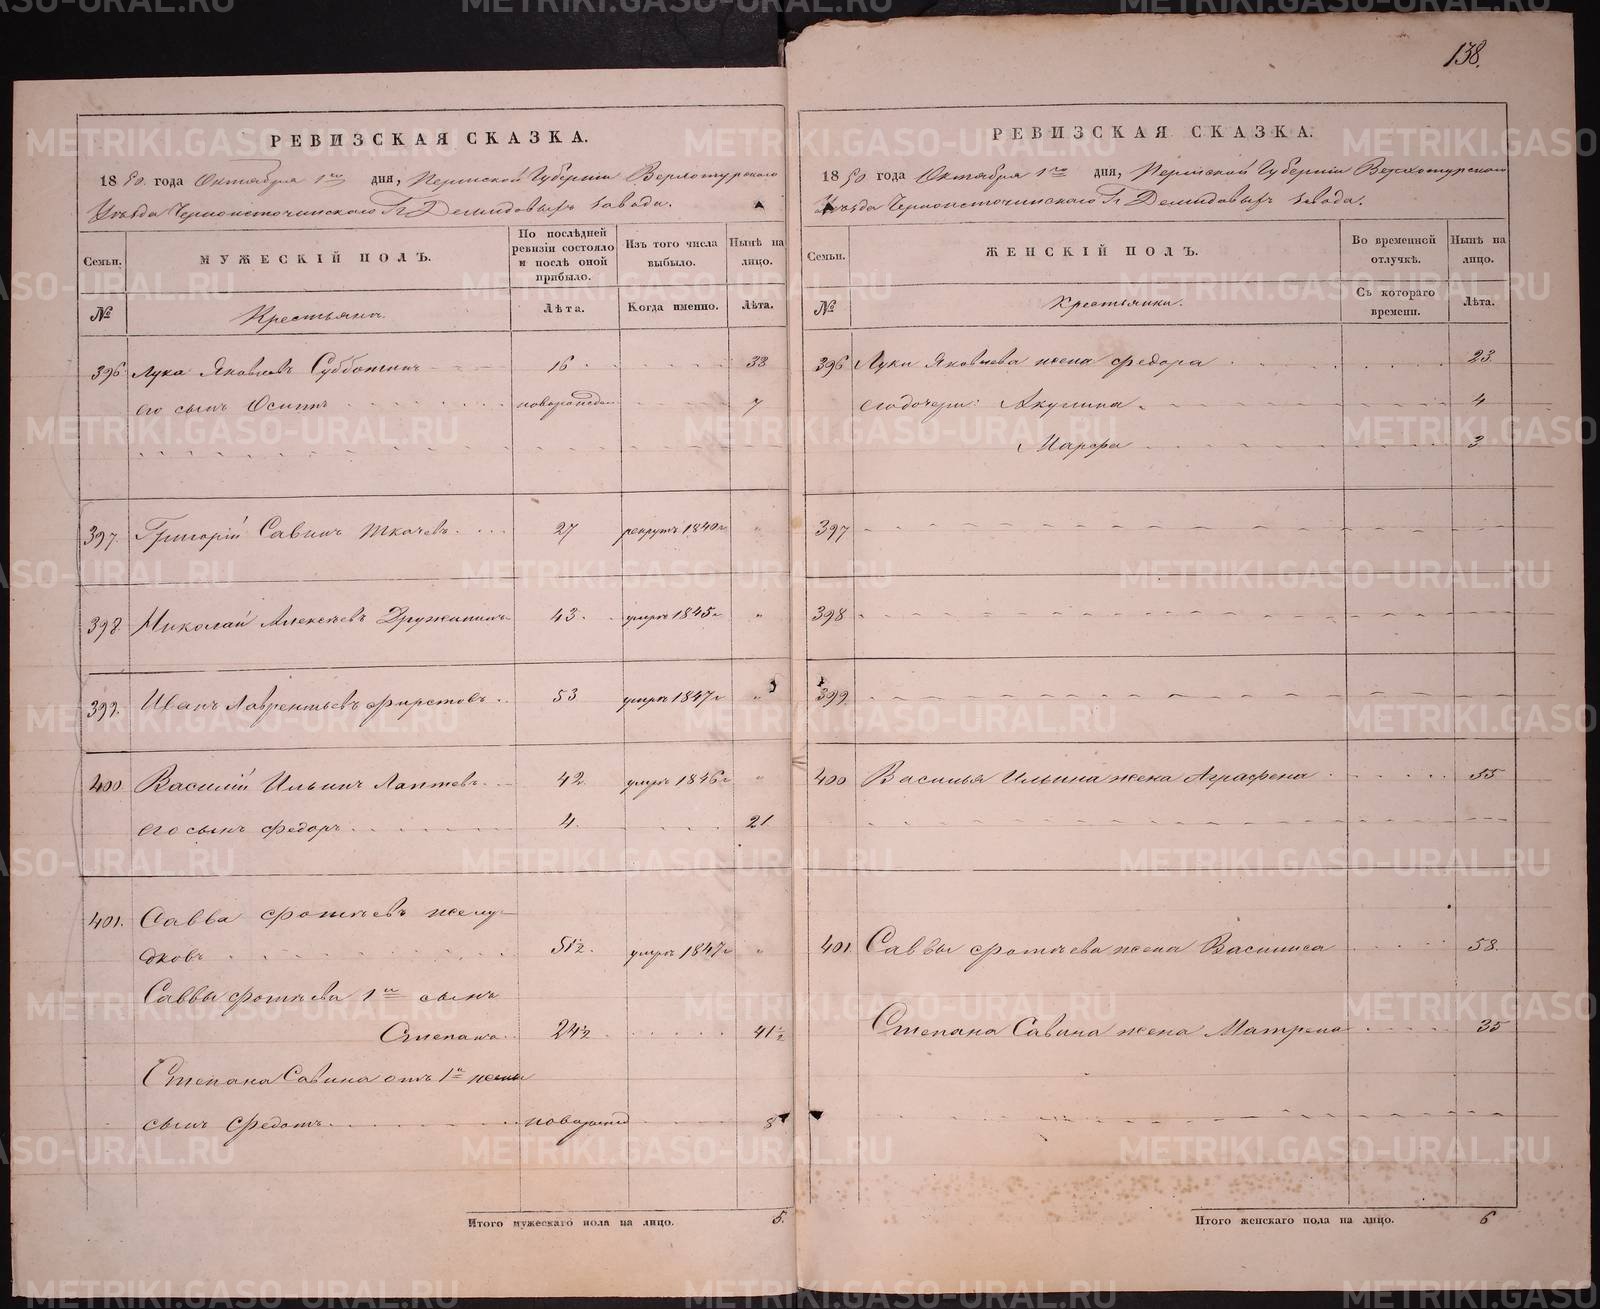 138.
РЕВИЗСКАЯ СКАЗКА.
1850. года Октября 1го дня, Пермской Губерніи Верхотурского
Уѣзда Черноисточинского Гг Демидовыхъ завода.
Семьи. МУЖЕСКІЙ ПОЛЪ. По послѣдней ревизіи состояло и послѣ оной прибыло. Изъ того числа выбыло. Нынѣ на лицо.
№ Крестьяне. Лѣта. Когда именно. Лѣта.
396 Лука Яковлевъ Субботинъ 16 33
его сынъ Осипъ новорожден 7
397. Григорій Савинъ Ткачевъ 27 рекрутъ 1840г "
398. Николай Алексѣевъ Дружининъ 43 умеръ 1845г "
399. Иванъ Лаврентьевъ Фирстовъ 53 умеръ 1847г "
400 Василій Ильинъ Лаптевъ 42 умеръ 1846г "
его сынъ Федоръ 4. 21
401. Савва Фотѣевъ Желу-
дковъ 51½ умеръ 1847г "
Саввы Фотѣева 1й сынъ
Степанъ 24½ 41½
Степана Савина отъ 1й жены
сынъ Федотъ новорожд 8
Итого мужескаго пола на лицо. 5.
РЕВИЗСКАЯ СКАЗКА.
1850. года Октября 1го дня, Пермской Губерніи Верхотурского
Уѣзда Черноисточинского Гг Демидовыхъ завода.
Семьи. ЖЕНСКІЙ ПОЛЪ. Во временной отлучкѣ. Нынѣ на лицо.
№ Крестьянки. Съ котораго времени. Лѣта.
396 Луки Яковлева жена Федора 23
его дочери: Акулина 4
Марфа 3
397
398
399
400 Василья Ильина жена Аграфена 55
401 Саввы Фотѣева жена Василиса 58.
Степана Савина жена Матрена 35
Итого женскаго пола на лицо. 6
METRIKI.GASO-URAL.RU